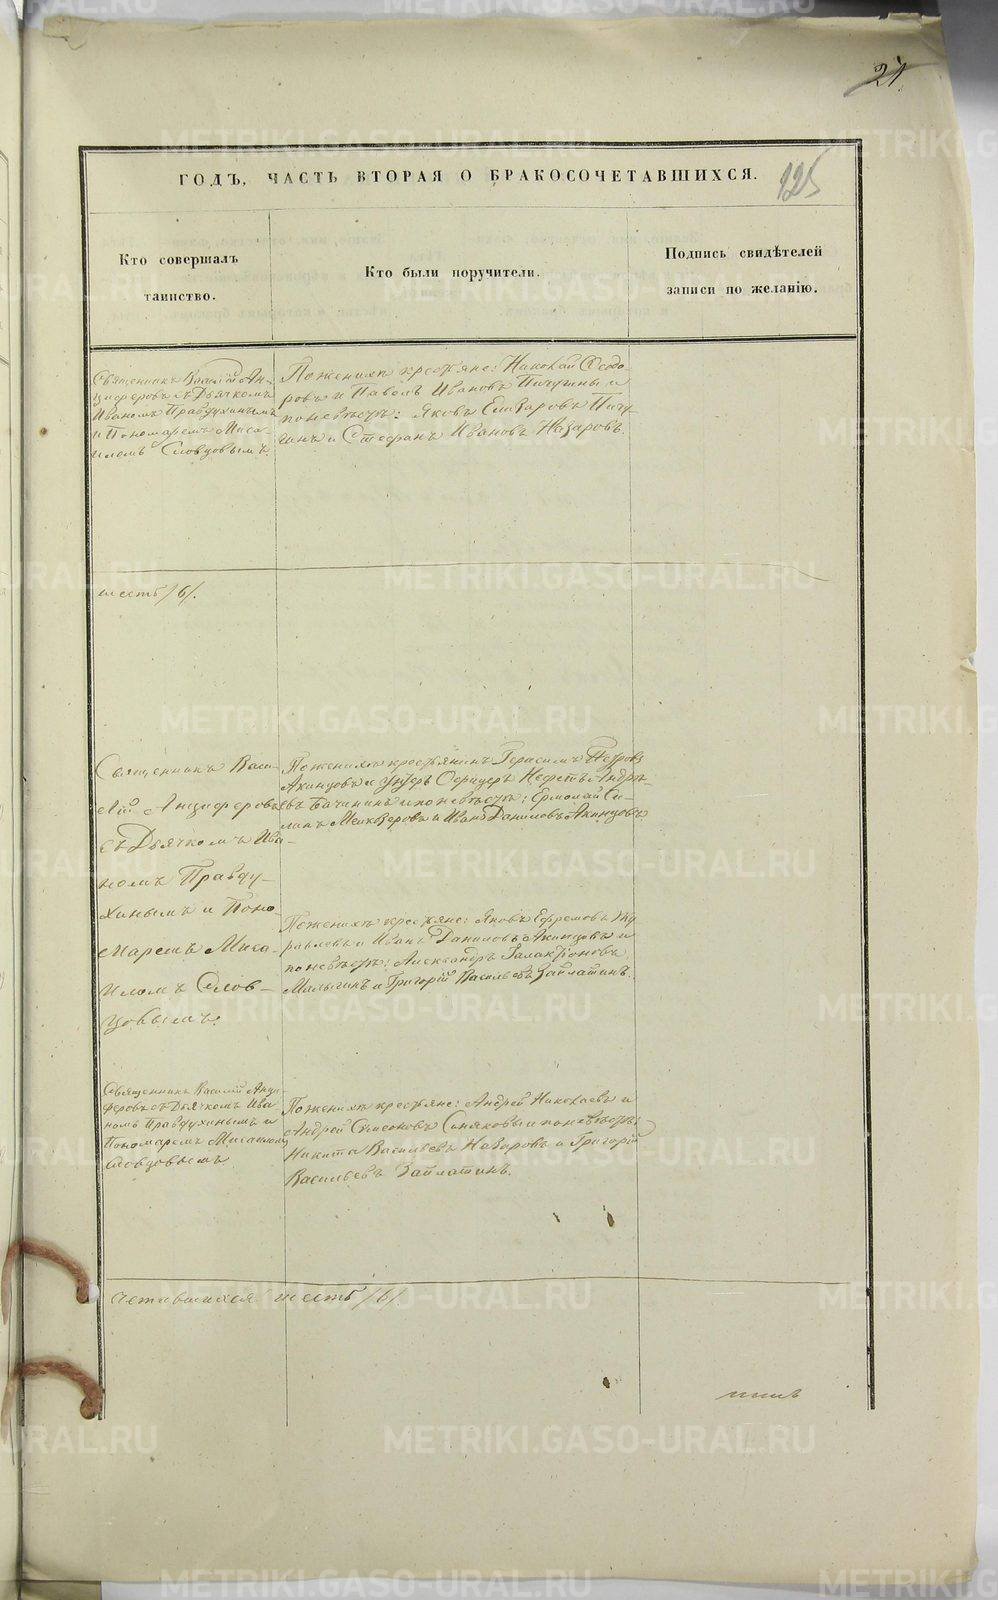 21
125
ГОДЪ, ЧАСТЬ ВТОРАЯ О БРАКОСОЧЕТАВШИХСЯ.
Кто совершалъ
таинство.
Кто были поручители.
Подпись свидѣтелей
записи по желанію.
Священникъ Василій Ан-
циферовъ съ Дьячкомъ
Иваномъ Правдухинымъ
и Пономаремъ Миса-
иломъ Словцовымъ.
По женихѣ крестьяне: Николай Ѳеодо-
ровъ и Павелъ Ивановъ Пичугины и
по невѣстѣ: Яковъ Елизаровъ Пичу-
гинъ и Стефанъ Ивановъ Назаровъ.
шесть /6/.
Священникъ Васи-
лій Анциферовъ
съ Дьячкомъ Ива-
номъ Правду-
хинымъ и Поно-
маремъ Миса-
иломъ Слов-
цовымъ.
По женихѣ крестьянинъ Герасимъ Петровъ
Акинцовъ и Унтеръ Офицеръ Нефетъ Андре-
евъ Бачининъ и по невѣстѣ: Ермолай Си-
линъ и Иванъ Даниловъ Акинцовъ
По женихѣ крестьяне: Яковъ Ефремовъ Жу-
равлевъ и Иванъ Даниловъ Акинцовъ и
по невѣстѣ: Александръ Галактіоновъ
Малыгинъ и Григорій Васильевъ Зайлатинъ.
Священникъ Василій Анци-
феровъ съ Дьячкомъ Ива-
номъ Правдухинымъ и
Пономаремъ Мисаиломъ
Словцовымъ
По женихѣ крестьяне: Андрей Николаевъ и
Андрей Симеоновъ Синяковы и по невѣстѣ:
Никита Васильевъ Назаровъ и Григорій
Васильевъ Зайлатинъ.
четавшихся шесть /6/.
METRIKI.GASO-URAL.RU